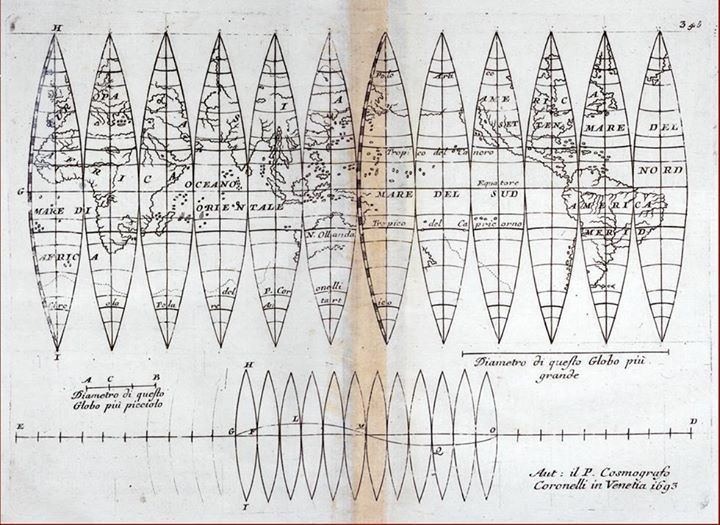 345
H
AME RIC
SET TEN.
MARE DEL
NORD
Polo Arti co
Tropico del Cancro
Equatore
MARE DEL SUD
Tropico del Capricorno
AMERICA
MERID
OCEANO
ORIENTALE
N. Ollanda
P. Cor onelli
AFRICA
MARE DI
AFRICA
G
I
Diametro di questo Globo più
grande
A C B
Diametro di questo
Globo più picciolo
H
E G F L M Q O D
I
Aut: il P. Cosmografo
Coronelli in Venetia 1693